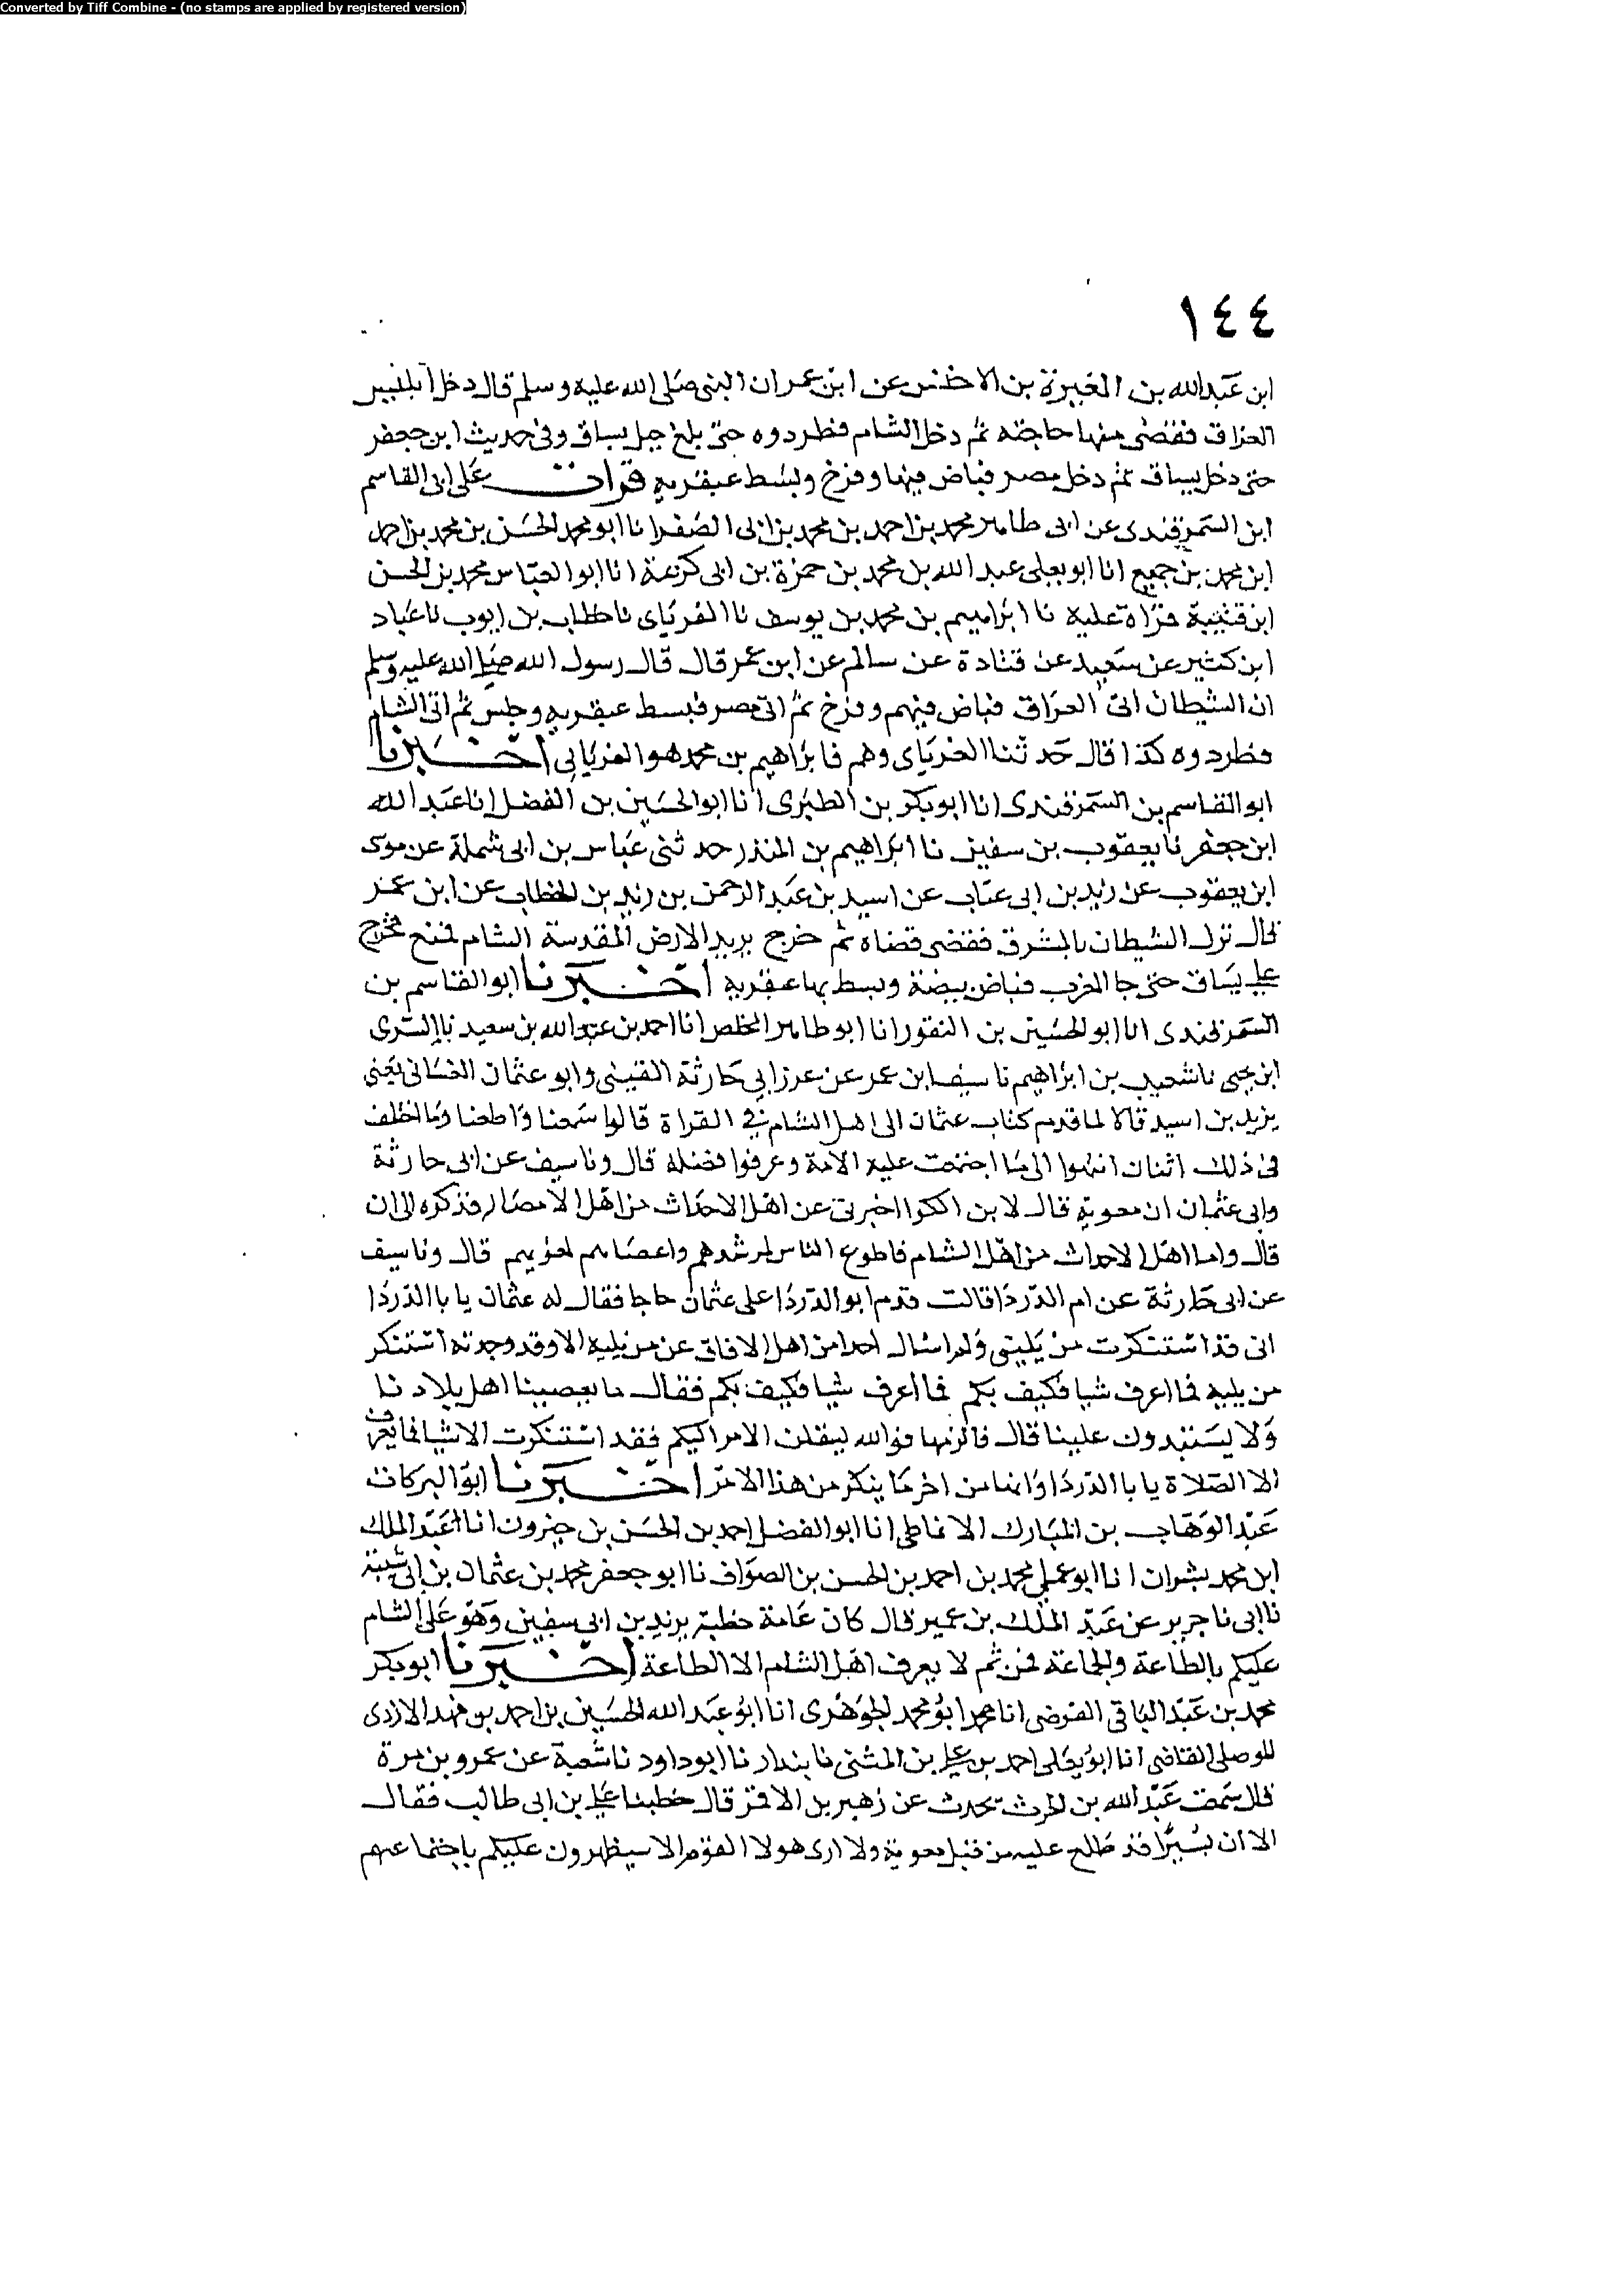 Converted by Tiff Combine - (no stamps are applied by registered version)
١٤٤
ابن عبدالله بن المغيرة بن الاخنس عن ابن عمران النبى صلى الله عليه وسلم قال دخل ابليس
العراق فقضى منها حاجته ثم دخل الشام فطردوه حتى بلغ جبل بساق وفى حديث ابن جعفر
حتى دخل بيساق ثم دخل مصر فباض فيها وفرخ وبسط عبقريه قرات على ابى القاسم
ابن السمرقندى عن ابى طاهر محمد بن احمد بن محمد بن ابى الصقر انا ابو محمد الحسن بن محمد بن احمد
ابن محمد بن جميع انا ابو يعلى عبد الله بن محمد بن حمزة بن ابى كريمة انا ابو العباس محمد بن الحسن
ابن قتيبة قراة عليه نا ابراهيم بن محمد بن يوسف نا الفريابى نا خطاب بن ايوب نا عباد
ابن كثير عن سعيد عن قتادة عن سالم عن ابن عمر قال قال رسول الله صلى الله عليه وسلم
ان الشيطان اتى العراق فباض فيهم وفرخ ثم اتى مصر فبسط عبقريه وجلس ثم اتى الشام
فطردوه كذا قال حدثنا الفريابى وهم فا براهيم بن محمد هو الفريابى اخبرنا
ابو القاسم بن السمرقندى انا ابو بكر بن الطبرى انا ابو الحسين بن الفضل انا عبد الله
ابن جعفر نا يعقوب بن سفين نا ابراهيم بن المنذر حدثنى عباس بن ابى شملة عن موسى
ابن يعقوب عن زيد بن ابى عتاب عن اسيد بن عبد الرحمن بن زيد بن الخطاب عن ابن عمر
قال نزل الشيطان بالمشرق فقضى قضاه ثم خرج يريد الارض المقدسة الشام فمنع فخرج
على بساق حتى جا المغرب فباض بيضه وبسط بها عبقريه اخبرنا ابو القاسم بن
السمرقندى انا ابو الحسين بن النقور انا ابو طاهر المخلص انا احمد بن عبد الله بن سعيد نا السرى
ابن يحيى نا شعيب بن ابراهيم نا سيف ابن عمر عن ابى حارثة القينى وابو عثمان الغسانى يعنى
يزيد بن اسيد قالا لما قدم كتاب عثمان الى اهل الشام فى القراة قالوا سمعنا واطعنا وما اختلف
فى ذلك اثنان انتهوا الى ما اجتمعت عليه الامة وعرفوا فضله قال ونا سيف عن ابى حارثة
وابى عثمان ان معوية قال لابن الكوا اخبرنى عن اهل الاحداث من اهل الامصار فذكره الى ان
قال واما اهل الاحداث من اهل الشام فاطوع الناس لمرشدهم واعصاهم لمغويهم قال ونا سيف
عن ابى حارثة عن ام الدردا قالت قدم ابو الدردا على عثمان حاجا فقال له عثمان يا با الدردا
انى قد استنكرت من يلينى ولم اسال احدا من اهل الافاق عن من يليه الا وقد وجدته استنكر
من يليه فما اعرف شيا فكيف بكم فما اعرف شيا فكيف بكم فقال ما يعصينا اهل بلادنا
ولا يستبدون علينا قال فالزمها فوالله لينقلن الامر اليكم فقد استنكرت الاشيا فما يعرف
الا الصلاة يا با الدردا وانما من اخر ما ينكر من هذا الامر اخبرنا ابو البركات
عبد الوهاب بن المبارك الانماطى انا ابو الفضل احمد بن الحسن بن خيرون انا عبد الملك
ابن محمد بشران انا ابو على محمد بن احمد بن الحسن بن الصواف نا ابو جعفر محمد بن عثمان بن ابى شيبة
نا ابى نا جرير عن عبد الملك بن عمير قال كان عامة خطبة يزيد بن ابى سفين وهو على الشام
عليكم بالطاعة والجماعة فمن ثم لا يعرف اهل الشام الا الطاعة اخبرنا ابو بكر
محمد بن عبد الباقى الفرضى انا ابو محمد الجوهرى انا ابو عبد الله الحسين بن احمد بن فهد الازدى
الموصلى القاضى انا ابو يعلى احمد بن على بن المثنى نا بندار نا ابو داود نا شعبة عن عمرو بن مرة
قال سمعت عبد الله بن الحرث يحدث عن زهير بن الاقمر قال خطبنا على بن ابى طالب فقال
الا ان بسرا قد طلع عليه من قبل معوية ولا ارى هولا القوم الا سيظهرون عليكم باجتماعهم